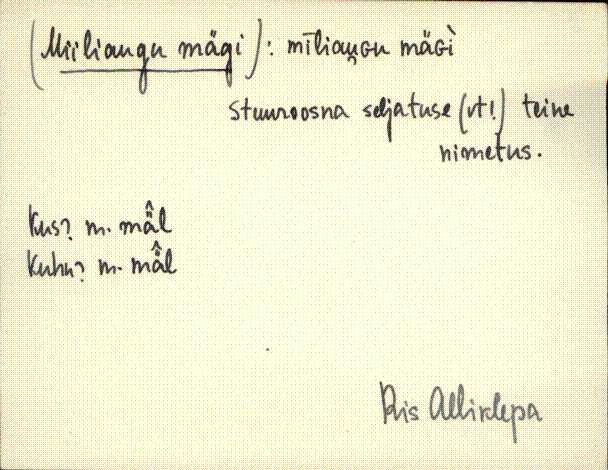 (Miiliaugu mägi): mīliau̬ɢu mäɢì
stuuroosna seljatuse (vt!) teine
nimetus.
Kus? m. mä̂l
Kuhu? m. mä̂l
Riis Alliklepa